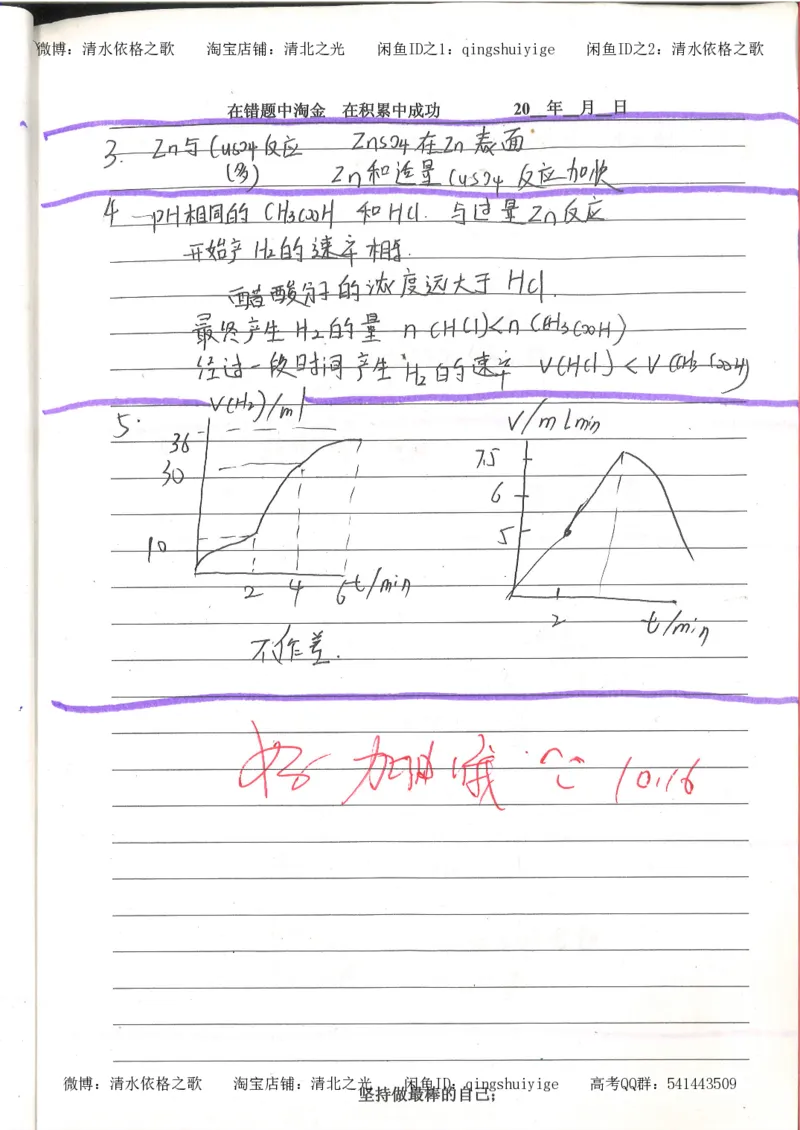 微博：清水依格之歌 淘宝店铺：清北之光 闲鱼ID之1：qingshuiyige 闲鱼ID之2：清水依格之歌
在错题中淘金 在积累中成功 20__年__月__日
3. Zn与CuSO4反应 ZnSO4在Zn表面
(多) Zn和适量CuSO4反应加快
4 pH相同的CH3COOH和HCl.与过量Zn反应
开始产H2的速率相等.
醋酸分子的浓度远大于HCl.
最终产生H2的量 n(HCl)<n(CH3COOH)
经过一段时间产生H2的速率 v(HCl)<v(CH3COOH)
5. V(H2)/ml
36
30
10
2 4 6 t/min
V/mlmin
7.5
6
5
2 t/min
不作差.
好 加油哦 10.16
微博：清水依格之歌 淘宝店铺：清北之光 闲鱼ID：qingshuiyige 高考QQ群：541443509
坚持做最棒的自己;